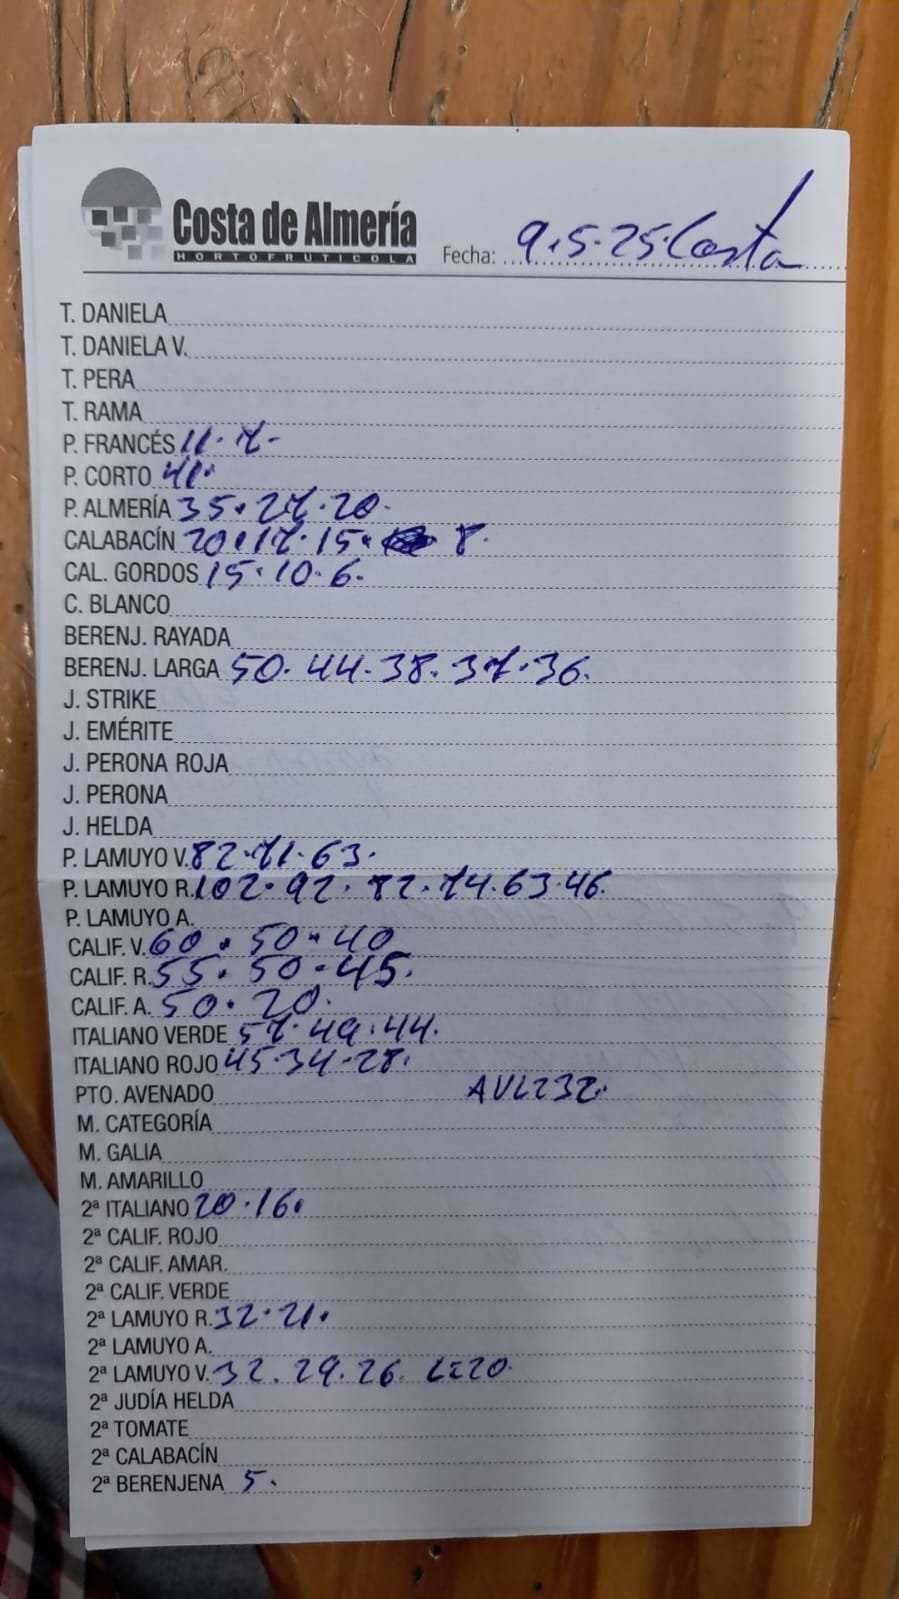 Costa de Almería
HORTOFRUTICOLA
Fecha: 9.5.25. Costa
T. DANIELA
T. DANIELA V.
T. PERA
T. RAMA
P. FRANCÉS 11. 7-
P. CORTO 41.
P. ALMERÍA 35. 27. 20.
CALABACÍN 20. 17. 15. 8.
CAL. GORDOS 15. 10. 6.
C. BLANCO
BERENJ. RAYADA
BERENJ. LARGA 50. 44. 38. 37. 36.
J. STRIKE
J. EMÉRITE
J. PERONA ROJA
J. PERONA
J. HELDA
P. LAMUYO V. 82. 71. 63.
P. LAMUYO R. 102. 92. 82. 74. 63. 46.
P. LAMUYO A.
CALIF. V. 60. 50. 40
CALIF. R. 55. 50. 45.
CALIF. A. 50. 20.
ITALIANO VERDE 57. 49. 44.
ITALIANO ROJO 45. 34. 28.
PTO. AVENADO
M. CATEGORÍA
M. GALIA
M. AMARILLO
2ª ITALIANO 20. 16.
2ª CALIF. ROJO
2ª CALIF. AMAR.
2ª CALIF. VERDE
2ª LAMUYO R. 32. 21.
2ª LAMUYO A.
2ª LAMUYO V. 32. 29. 26.
2ª JUDÍA HELDA
2ª TOMATE
2ª CALABACÍN
2ª BERENJENA 5.